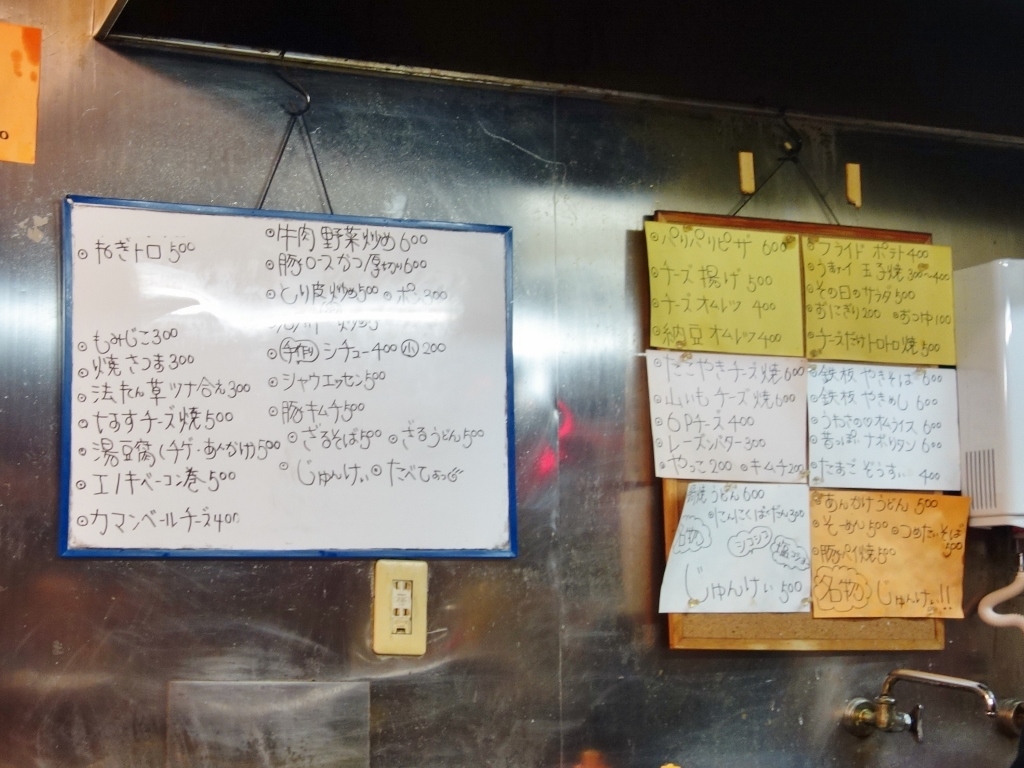 ◎ねぎトロ500
◎もみじこ300
◎焼さつま300
◎法れん草ツナ合え300
◎なすチーズ焼500
◎湯豆腐(チゲ・あんかけ)500
◎エノキベーコン巻500
◎カマンベールチーズ400
◎牛肉野菜炒め600
◎豚ロースかつ厚切り600
◎とり皮炒め500 ◎ポン300
◎手作りシチュー400 小200
◎シャウエッセン500
◎豚キムチ500
◎ざるそば500 ◎ざるうどん500
◎じゅんけい◎たべてねっ
◎パリパリピザ 600
◎チーズ揚げ 500
◎チーズオムレツ 400
◎納豆オムレツ400
◎フライドポテト400
◎うまァイ玉子焼300〜400
◎その日のサラダ500
◎おにぎり200 ◎おつゆ100
◎チーズだけトロトロ焼500
◎たこやきチーズ焼600
◎山いもチーズ焼600
◎6Pチーズ400
◎レーズンバター300
◎やっこ200 ◎キムチ200
◎鉄板やきそば600
◎鉄板やきめし600
◎うわさのオムライス600
◎昔っぽいナポリタン600
◎たまごぞうすい 400
うどん600
◎にんにくばくだん300
名物 シコシコ
じゅんけい500
◎あんかけうどん 500
◎そーめん500 ◎つめたいそば500
◎豚パイ焼500
名物 じゅんけい!!